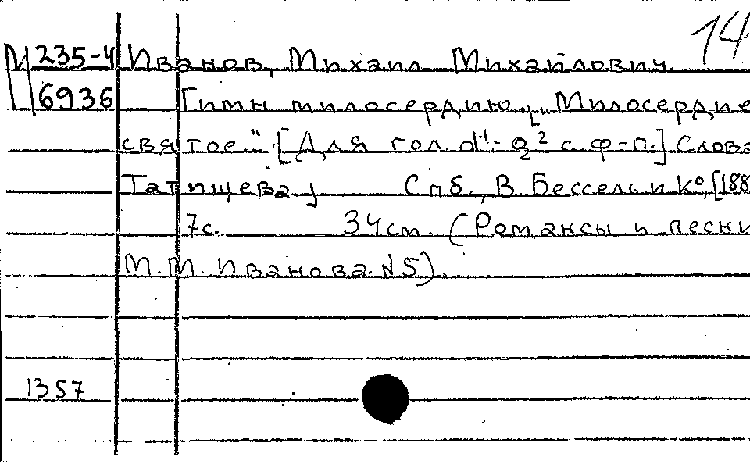 14
М 235-4 Иванов, Михаил Михайлович
6936 Гимн милосердию „Милосердие
святое" [Для гол. d¹-g² с ф-п.] Слова
Татищева] Спб., В. Бессель и К⁰, [188
7с. 34см. (Романсы и песни
М.М. Иванова. №5).
1357